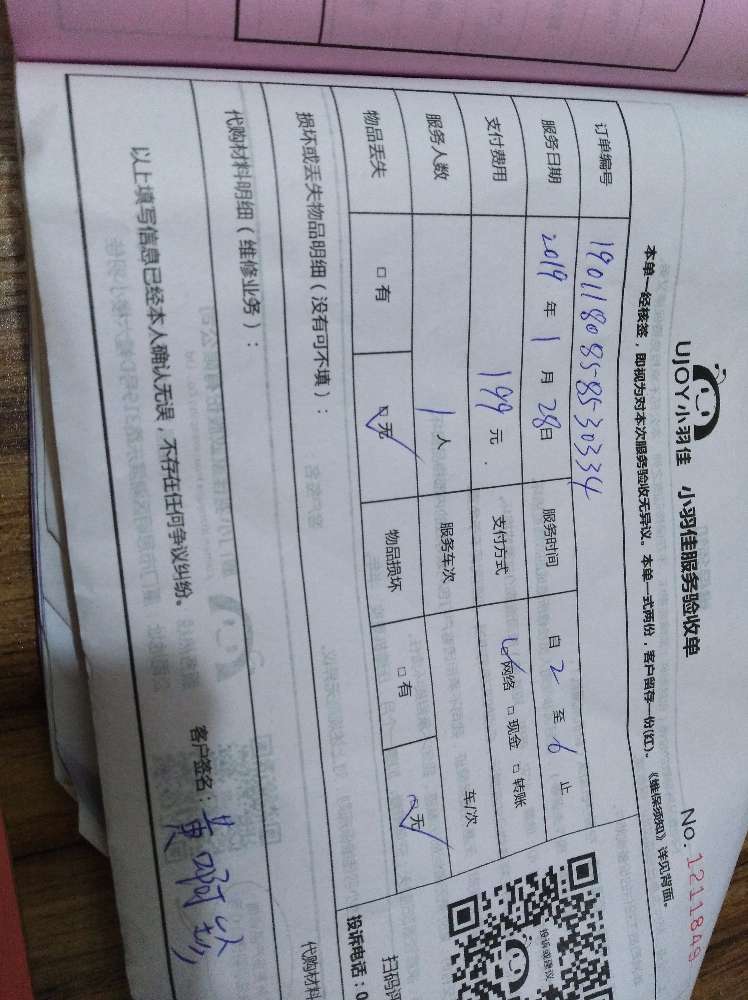 UJOY小羽佳 小羽佳服务验收单 No. 1211849
本单一经核签，即视为对本次服务验收无异议。本单一式两份，客户留存一份(红)。《维保须知》详见背面。
订单编号 1901180858530334
服务日期 2019 年 1 月 28 日 服务时间 自 2 至 6 止
支付费用 199 元. 支付方式 ☑网络 □现金 □转账
服务人数 1 人 服务车次 车/次
物品丢失 □有 ☑无 物品损坏 □有 ☑无
损坏或丢失物品明细（没有可不填）：
代购材料明细（维修业务）： 代购材料
以上填写信息已经本人确认无误，不存在任何争议纠纷。 客户签名：黄
投诉或建议
扫码评
投诉电话：0